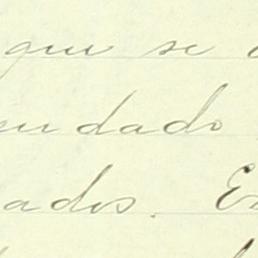 que se
en dado
ados. E